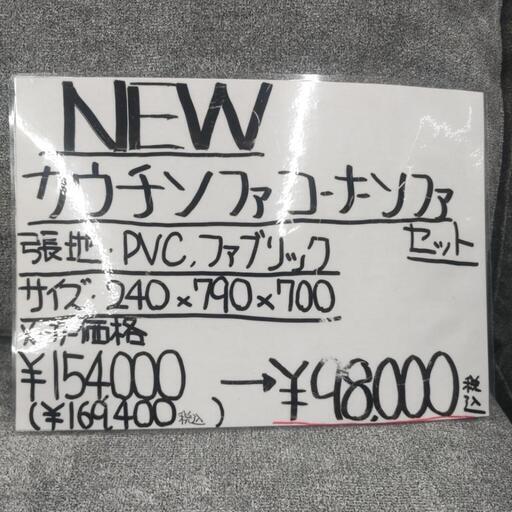 NEW
カウチソファコーナーソファ
セット
張地・PVC,ファブリック
サイズ・240×790×700
価格
¥154,000 →¥98,000 税込
(¥169,400 税込)